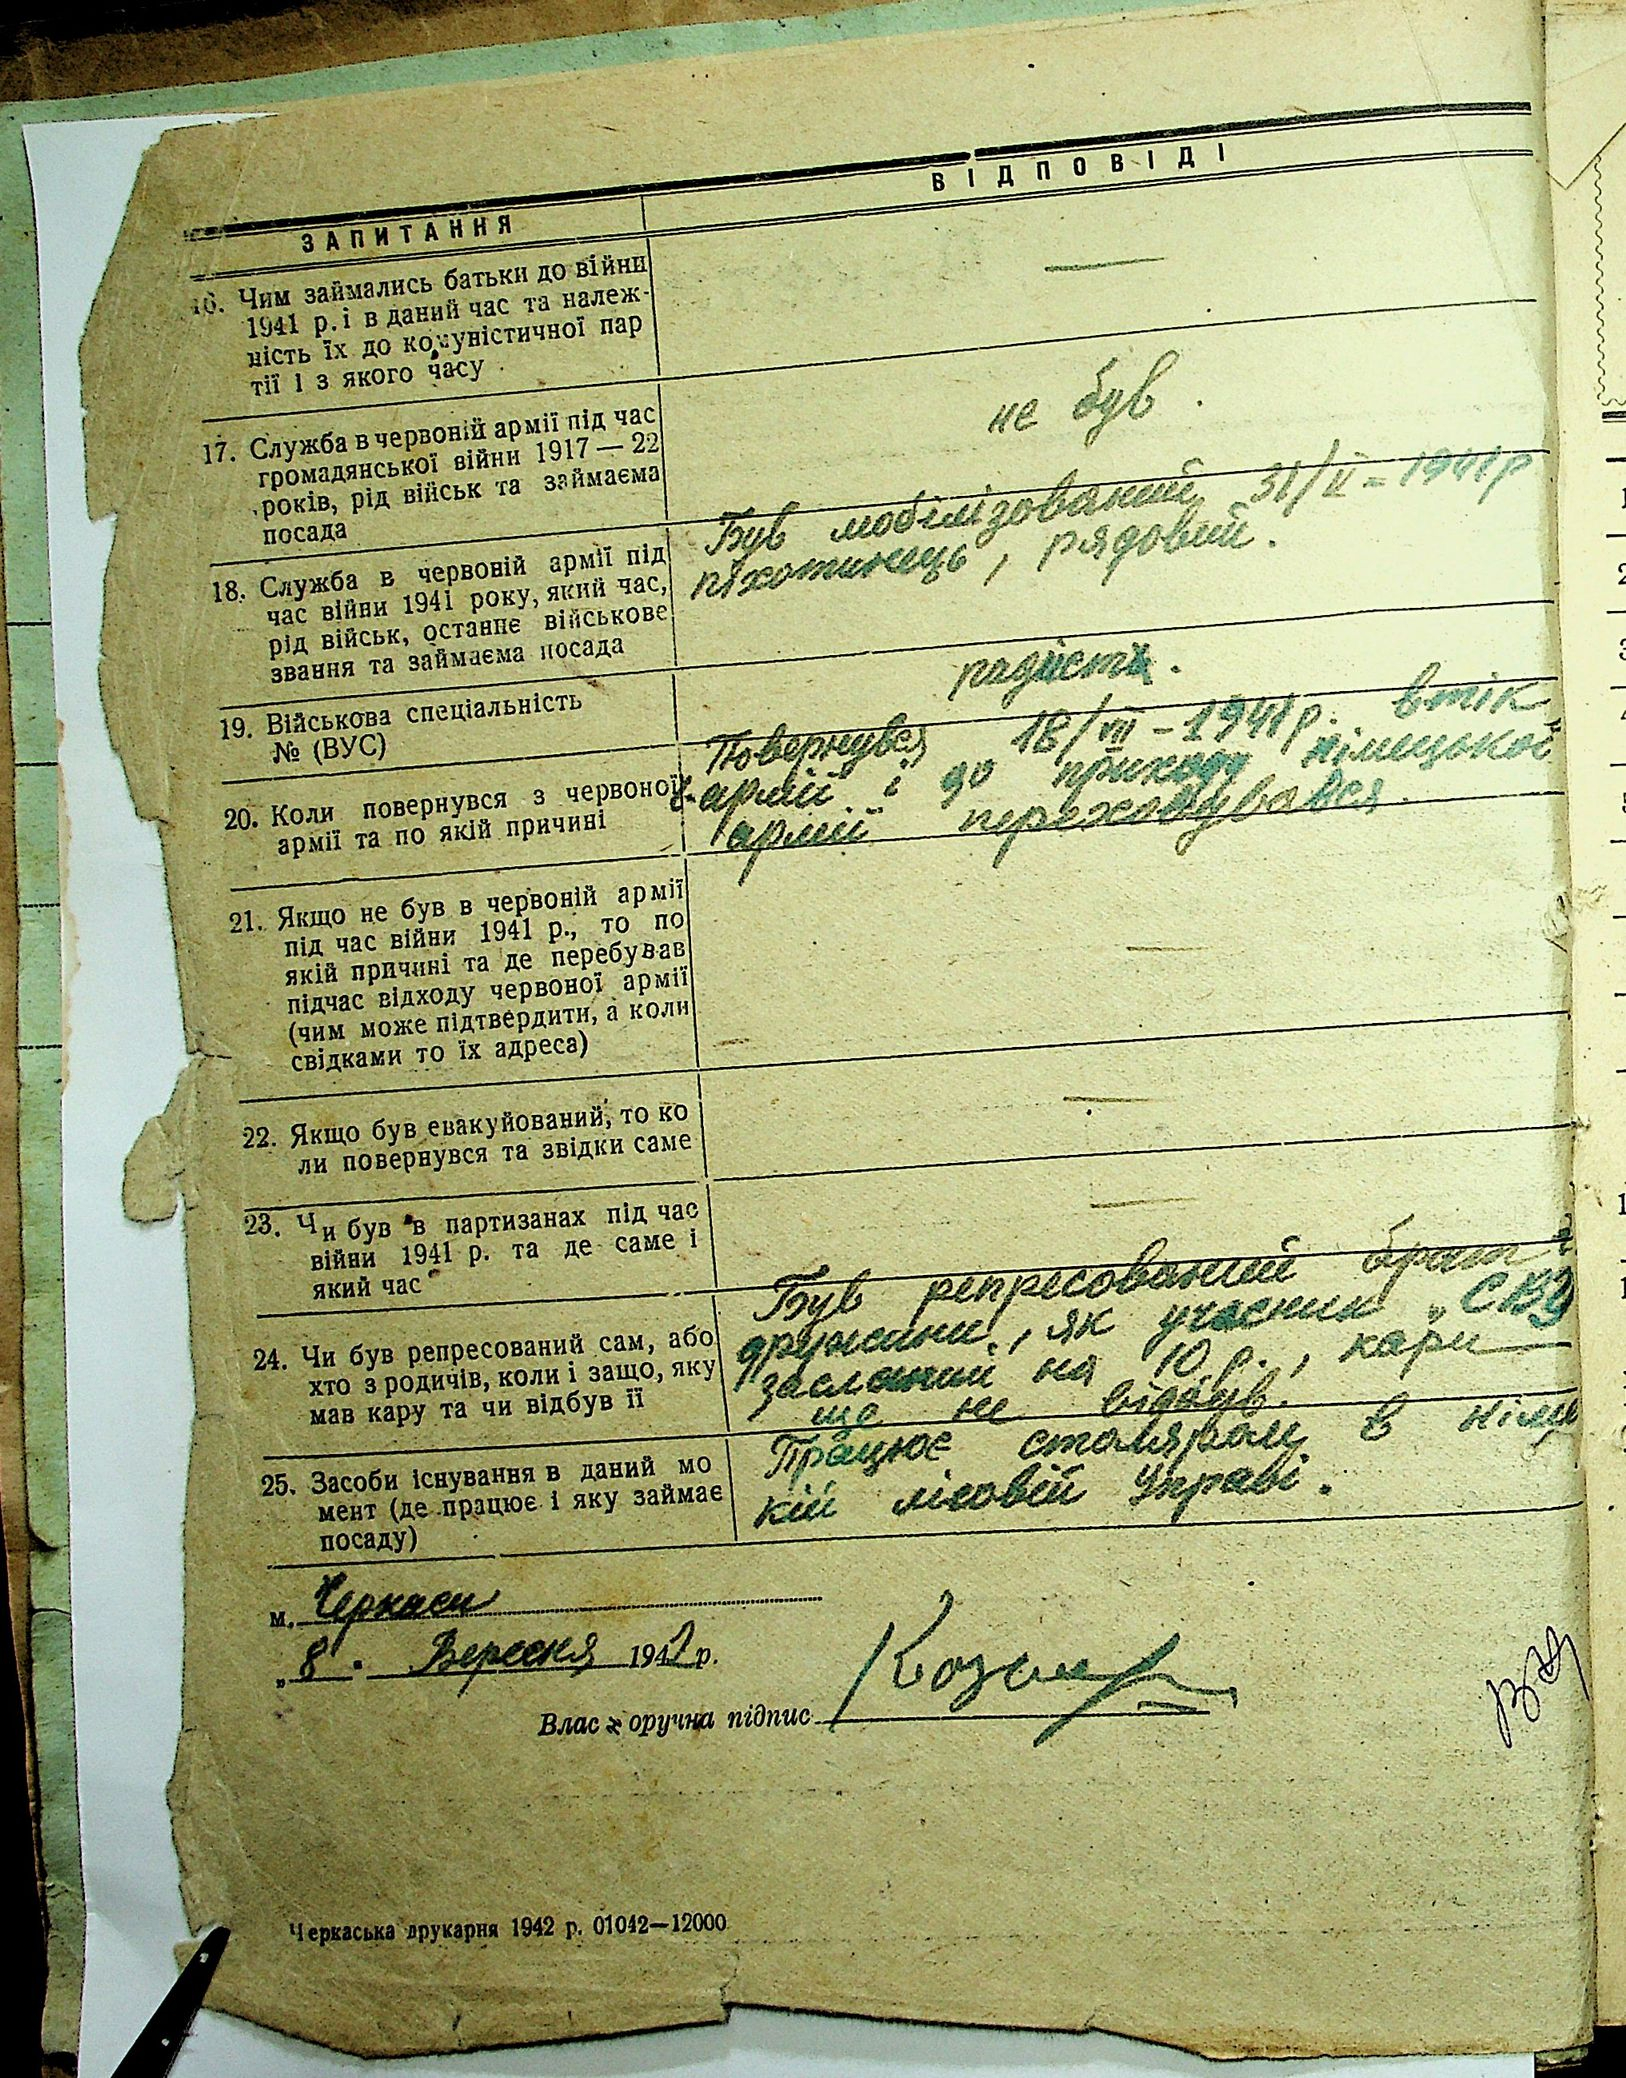 ЗАПИТАННЯ
ВІДПОВІДІ
16. Чим займались батьки до війни
1941 р. і в даний час та належ-
ність їх до комуністичної пар
тії і з якого часу
17. Служба в червоній армії під час
громадянської війни 1917 — 22
років, рід військ та займаєма
посада
не був.
18. Служба в червоній армії під
час війни 1941 року, який час,
рід військ, останнє військове
звання та займаєма посада
Був мобілізований 31/II - 1941 р
піхотинець, рядовий.
19. Військова спеціальність
№ (ВУС)
радист.
20. Коли повернувся з червоної
армії та по якій причині
Повернувся 18/VII - 1941 р. втік
армії і до приходу німецької
армії переховувався.
21. Якщо не був в червоній армії
під час війни 1941 р., то по
якій причині та де перебував
підчас відходу червоної армії
(чим може підтвердити, а коли
свідками то їх адреса)
22. Якщо був евакуйований, то ко
ли повернувся та звідки саме
23. Чи був в партизанах під час
війни 1941 р. та де саме і
який час
24. Чи був репресований сам, або
хто з родичів, коли і защо, яку
мав кару та чи відбув її
Був репресований брат
дружини, як учасник „СВУ
засланий на 10 р., кари
ще не відбув.
25. Засоби існування в даний мо
мент (де працює і яку займає
посаду)
Працює столяром в німец
кій лісовій Управі.
м. Черкаси
„8" Вересня 1942 р.
Власноручна підпис
Черкаська друкарня 1942 р. 01042—12000